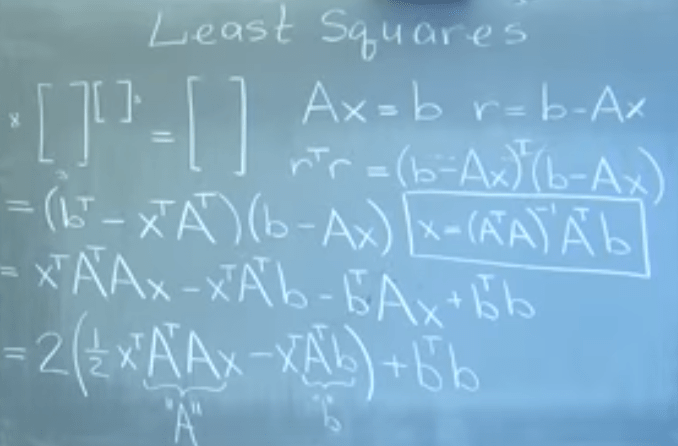 Least Squares
8 [ ] [ ]³ = [ ] Ax = b r = b-Ax
3
rᵀr = (b-Ax)ᵀ(b-Ax)
= (bᵀ - xᵀAᵀ)(b - Ax) x = (AᵀA)⁻¹Aᵀb
= xᵀAᵀAx - xᵀAᵀb - bᵀAx + bᵀb
= 2(½xᵀAᵀAx - xᵀAᵀb) + bᵀb
"A" "b"